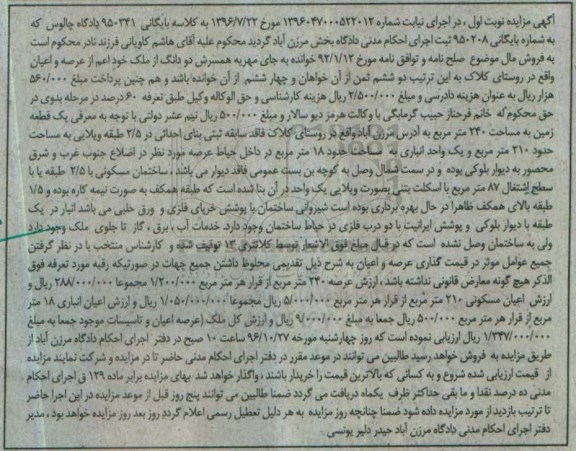 آگهی مزایده نوبت اول ، در اجرای نیابت شماره ۱۳۹۶۰۴۷۰۰۰۵۲۲۰۱۲ مورخ ۱۳۹۶/۷/۲۲ به کلاسه بایگانی ۹۵۰۳۴۱ دادگاه چالوس که
به شماره بایگانی ۹۵۰۲۰۸ ثبت اجرای احکام مدنی دادگاه بخش مرزن آباد گردید محکوم علیه آقای هاشم کاویانی فرزند نادر محکوم است
به فروش مال موضوع صلح نامه و توافق نامه مورخ ۹۲/۱/۱۲ خوانده به جای مهریه همسرش دو دانگ از ملک خود اعم از عرصه و اعیان
واقع در روستای کلاک به این ترتیب دو ششم ثمن از آن خواهان و چهار ششم از آن خوانده باشد و هم چنین پرداخت مبلغ ۵۶۰/۰۰۰
هزار ریال به عنوان هزینه دادرسی و مبلغ ۲/۵۰۰/۰۰۰ ریال هزینه کارشناسی و حق الوکاله وکیل طبق تعرفه ۶۰ درصد در مرحله بدوی در
حق محکوم‌له خانم فرحناز حبیب گرمابگی با وکالت هرمز دیو سالار و مبلغ ۵۰۰/۰۰۰ ریال نیم عشر دولتی با توجه به معرفی یک قطعه
زمین به مساحت ۲۴۰ متر مربع به آدرس مرزن آباد واقع در روستای کلاک فاقد سابقه ثبتی بنای احداثی در ۲/۵ طبقه ویلایی به مساحت
حدود ۲۱۰ متر مربع و یک واحد انباری به مساحت حدود ۱۸ متر مربع در داخل حیاط عرصه مورد نظر در اضلاع جنوب غرب و شرق
محصور به دیوار بلوکی بوده و در سمت شمال وصل به کوچه بن بست عمومی فاقد دیوار می باشد ، ساختمان مسکونی با ۲/۵ طبقه یا با
سطح اشتغال ۸۷ متر مربع با اسکلت بتنی بصورت ویلایی یک واحد در آن بنا شده است که طبقه همکف به صورت نیمه کاره بوده و ۱/۵
طبقه بالای همکف ظاهرا در حال بهره برداری بوده است شیروانی ساختمان با پوشش خرپای فلزی و ورق حلبی می باشد انبار در یک
طبقه با دیوار بلوکی و پوشش ایرانیت با دو درب فلزی در حیاط ساختمان وجود دارد. خدمات آب ، برق ، گاز تا جلوی ملک وجود دارد
ولی به ساختمان وصل نشده است که در قبال مبلغ فوق الاشعار توسط کلانتری ۱۳ توقیف شده و کارشناس منتخب با در نظر گرفتن
جمیع عوامل موثر در قیمت گذاری عرصه و اعیان به شرح ذیل تقدیمی محلوظ داشتن جمیع جهات در صورتیکه رقبه مورد تعرفه فوق
الذکر هیچ گونه معارض قانونی نداشته باشد ، ارزش عرصه ۲۴۰ متر مربع از قرار هر متر مربع ۱/۲۰۰/۰۰۰ مجموعا ۲۸۸/۰۰۰/۰۰۰ ریال و
ارزش اعیان مسکونی ۲۱۰ متر مربع از قرار هر متر مربع ۵/۰۰۰/۰۰۰ ریال مجموعا ۱/۰۵۰/۰۰۰/۰۰۰ ریال و ارزش اعیان انباری ۱۸ متر
مربع از قرار هر متر مربع ۵۰۰/۰۰۰ ریال جمعا به مبلغ ۹/۰۰۰/۰۰۰ ریال و ارزش کل ملک (عرصه اعیان و تاسیسات موجود جمعا به مبلغ
۱/۳۴۷/۰۰۰/۰۰۰ ریال ارزیابی نموده است که روز چهارشنبه مورخه ۹۶/۱۰/۲۷ ساعت ۱۰ صبح در دفتر اجرای احکام دادگاه مرزن آباد از
طریق مزایده به فروش خواهد رسید طالبین می توانند در موعد مقرر در دفتر اجرای احکام مدنی حاضر تا در مزایده و شرکت نمایند مزایده
از قیمت ارزیابی شده شروع و به کسانی که بالاترین قیمت را خریدار باشند ، واگذار خواهد شد بهای مزایده برابر ماده ۱۲۹ ق اجرای احکام
مدنی ده درصد نقدا و ما بقی حداکثر ظرف یکماه دریافت می گردد ضمنا طالبین می توانند پنج روز قبل از موعد مزایده در این اجرا حاضر
تا ترتیب بازدید از مورد مزایده داده شود ضمنا چنانچه روز مزایده به هر دلیل تعطیل رسمی اعلام گردد روز بعد روز مزایده خواهد بود ، مدیر
دفتر اجرای احکام مدنی دادگاه مرزن آباد حیدر دلیر یونسی